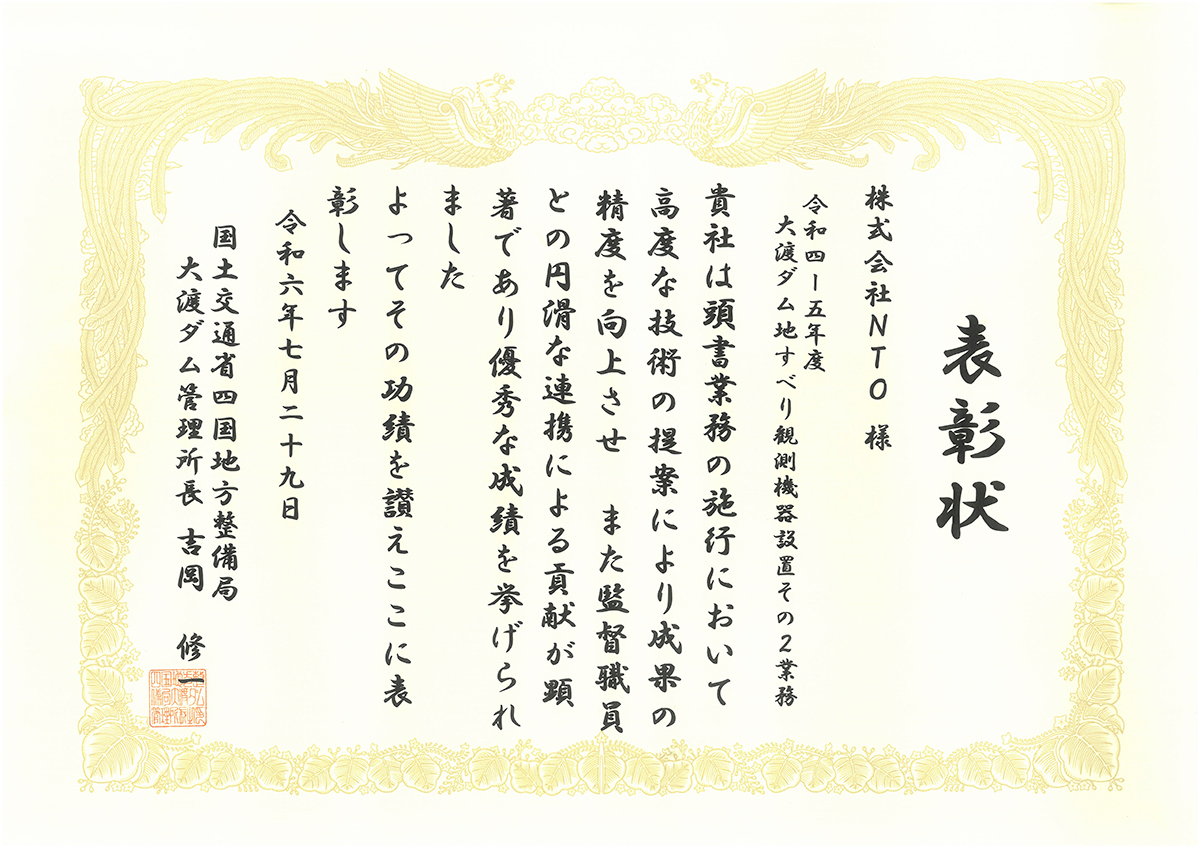 表彰状
株式会社NTO 様
令和四ー五年度
大渡ダム地すべり観測機器設置その2業務
貴社は頭書業務の施行において
高度な技術の提案により成果の
精度を向上させ また監督職員
との円滑な連携による貢献が顕
著であり優秀な成績を挙げられ
ました
よってその功績を讃えここに表
彰します
令和六年七月二十九日
国土交通省四国地方整備局
大渡ダム管理所長 吉岡 修一